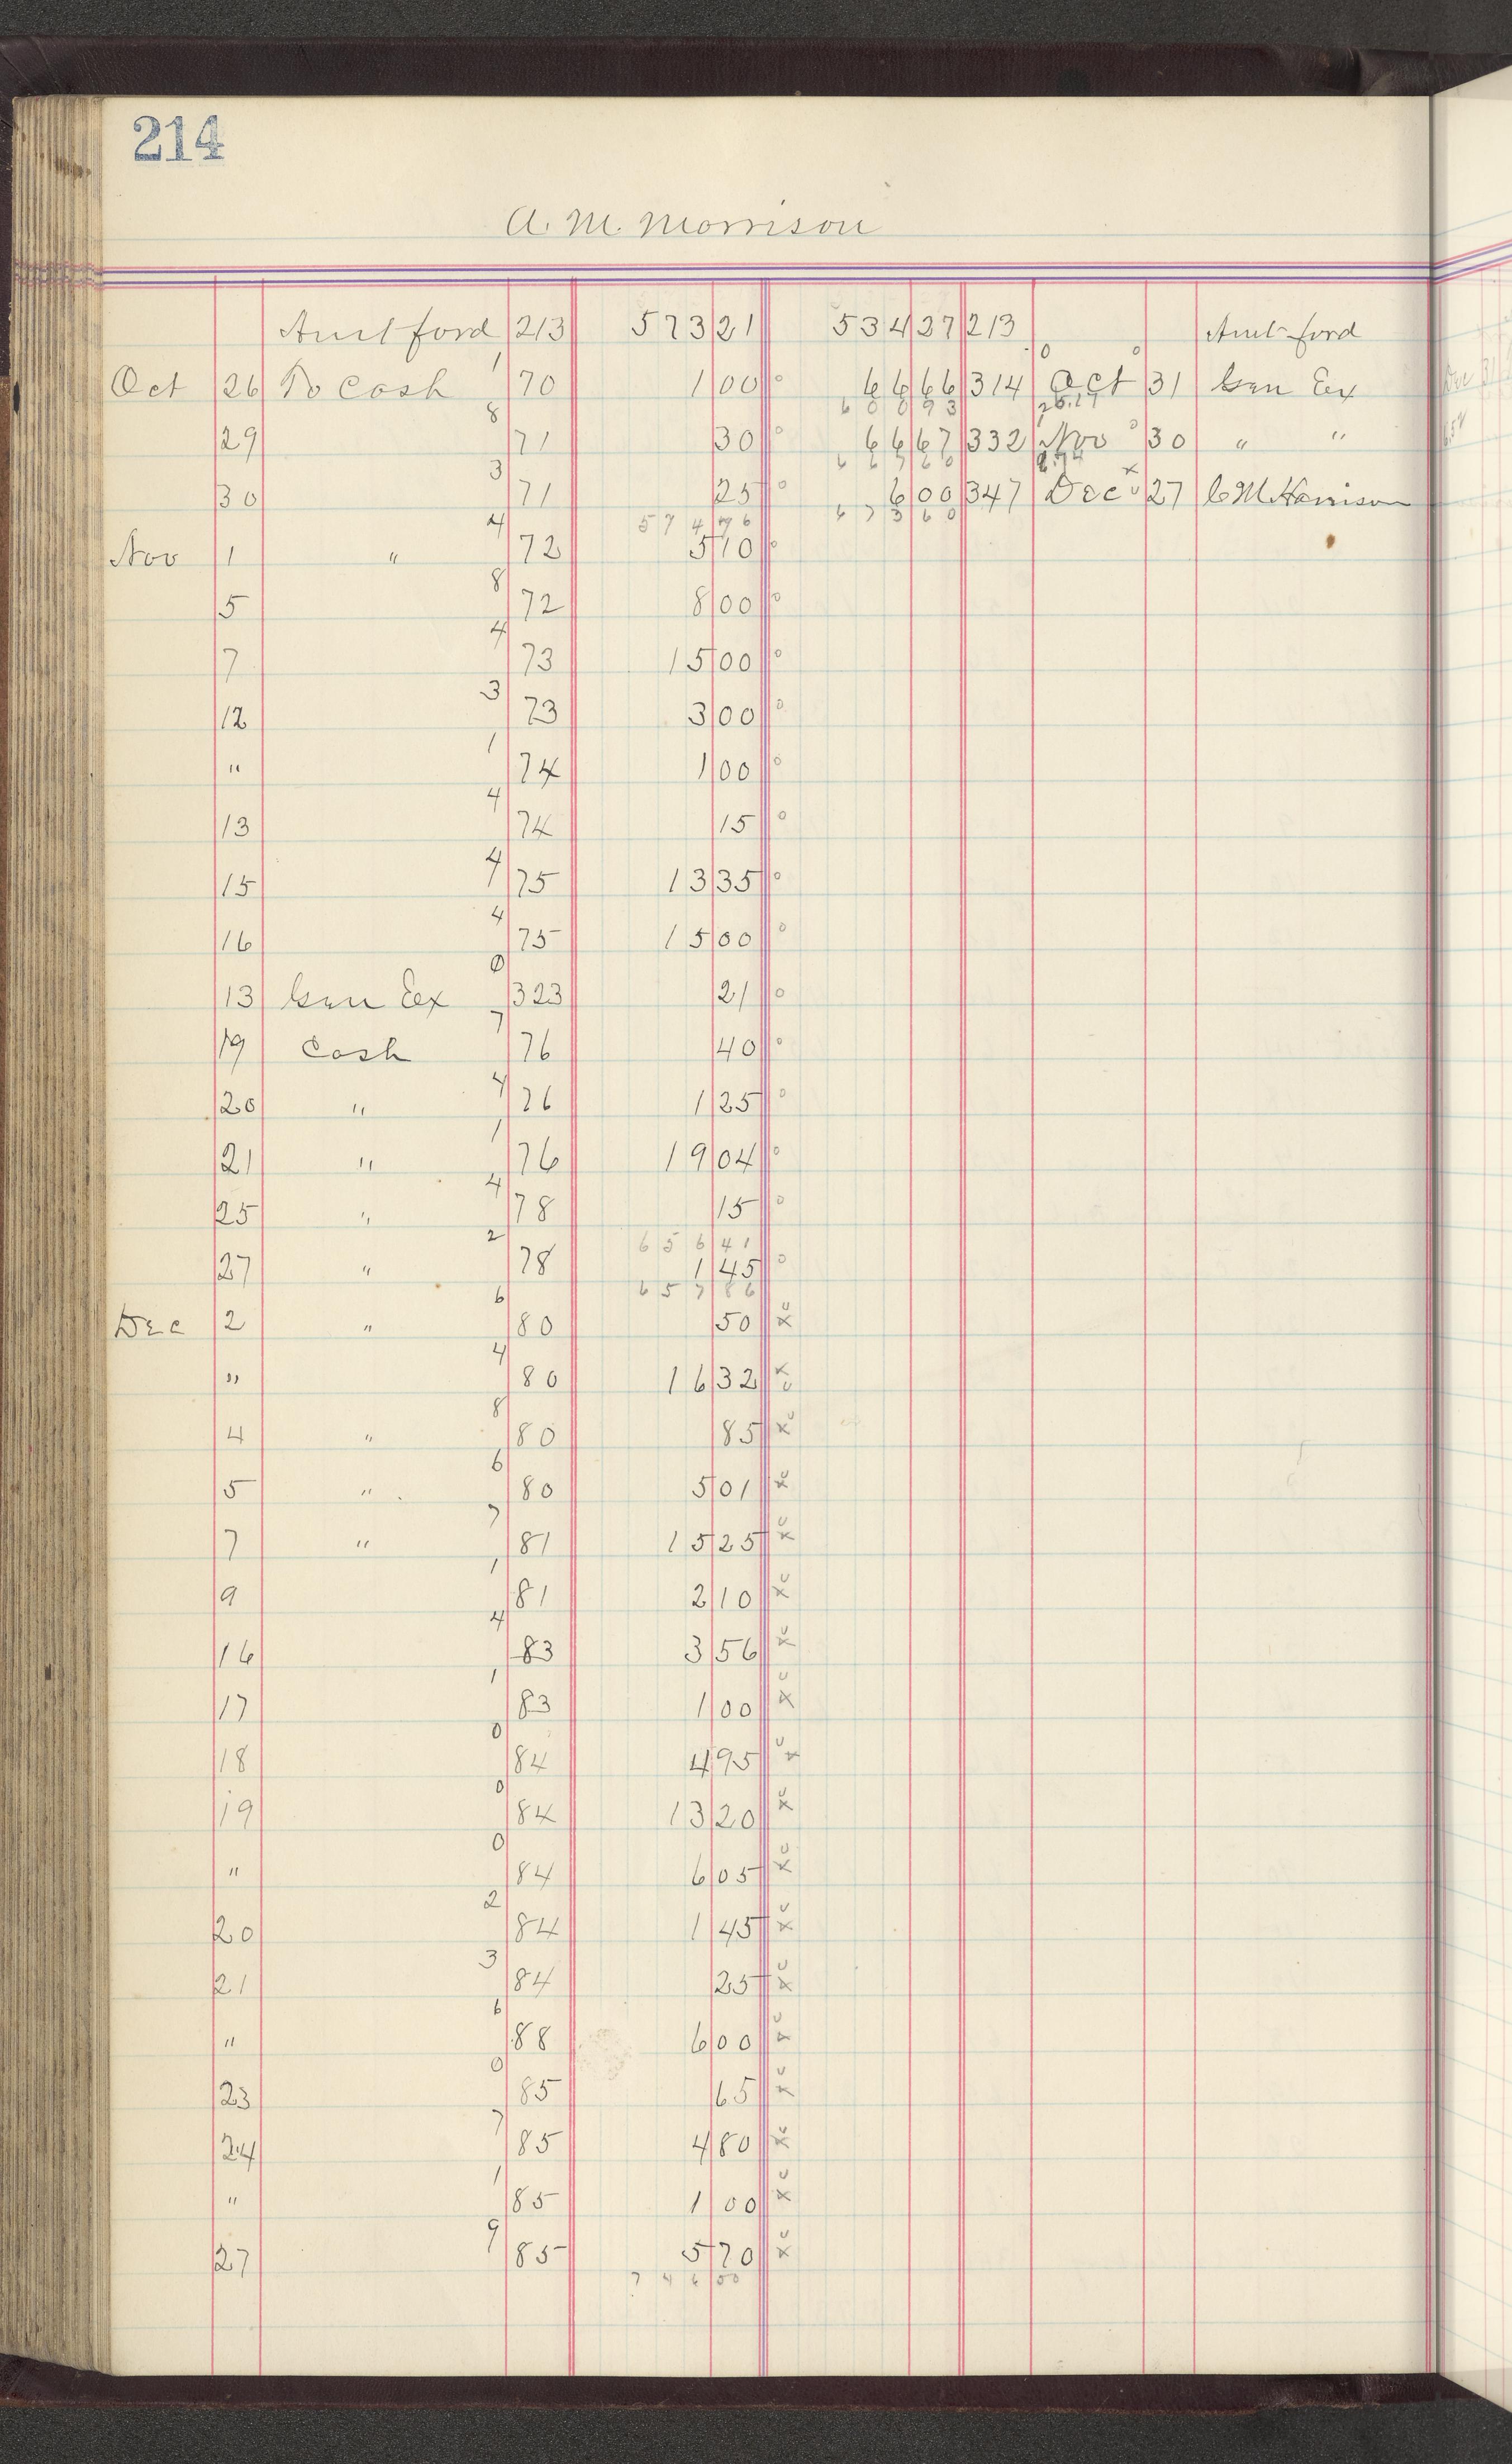 214
A. M. Morrison
Amt ford 213 573 21 534 27 213 Amt ford
Oct 26 To Cash 1 70 1 00 o 66 66 314 Oct 31 Gen Ex
600 93 26.17
29 8 71 30 o 66 67 332 Nov 30 " "
667 60
30 3 71 25 o 6 00 347 Dec 27 C M Harrison
574 76 673 60
Nov 1 " 4 72 5 10 o
5 8 72 8 00 o
7 4 73 15 00 o
12 3 73 3 00 o
" 1 74 1 00 o
13 4 74 15 o
15 4 75 13 35 o
16 4 75 15 00 o
13 Gen Ex 0 323 21 o
19 Cash 7 76 40 o
20 " 4 76 1 25 o
21 " 1 76 19 04 o
25 " 4 78 15 o
656 41
27 " 2 78 1 45 o
657 86
Dec 2 " 6 80 50 x
" 4 80 16 32 x
4 " 8 80 85 x
5 " 6 80 5 01 x
7 " 7 81 15 25 x
9 1 81 2 10 x
16 4 83 3 56 x
17 1 83 1 00 x
18 0 84 4 95 x
19 0 84 13 20 x
" 0 84 6 05 x
20 2 84 1 45 x
21 3 84 25 x
" 6 88 6 00 x
23 0 85 65 x
24 7 85 4 80 x
" 1 85 1 00 x
27 9 85 5 70 x
746 00